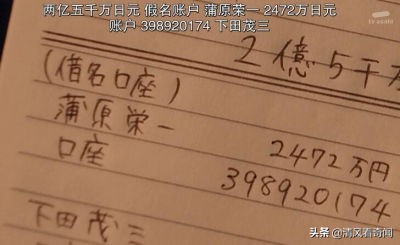 两亿五千万日元 假名账户 蒲原荣一 2472万日元
账户 398920174 下田茂三
tv asahi
2億5千万
(借名口座)
蒲原栄一
2472万円
口座
398920174
下田茂三
头条 @清风看奇闻